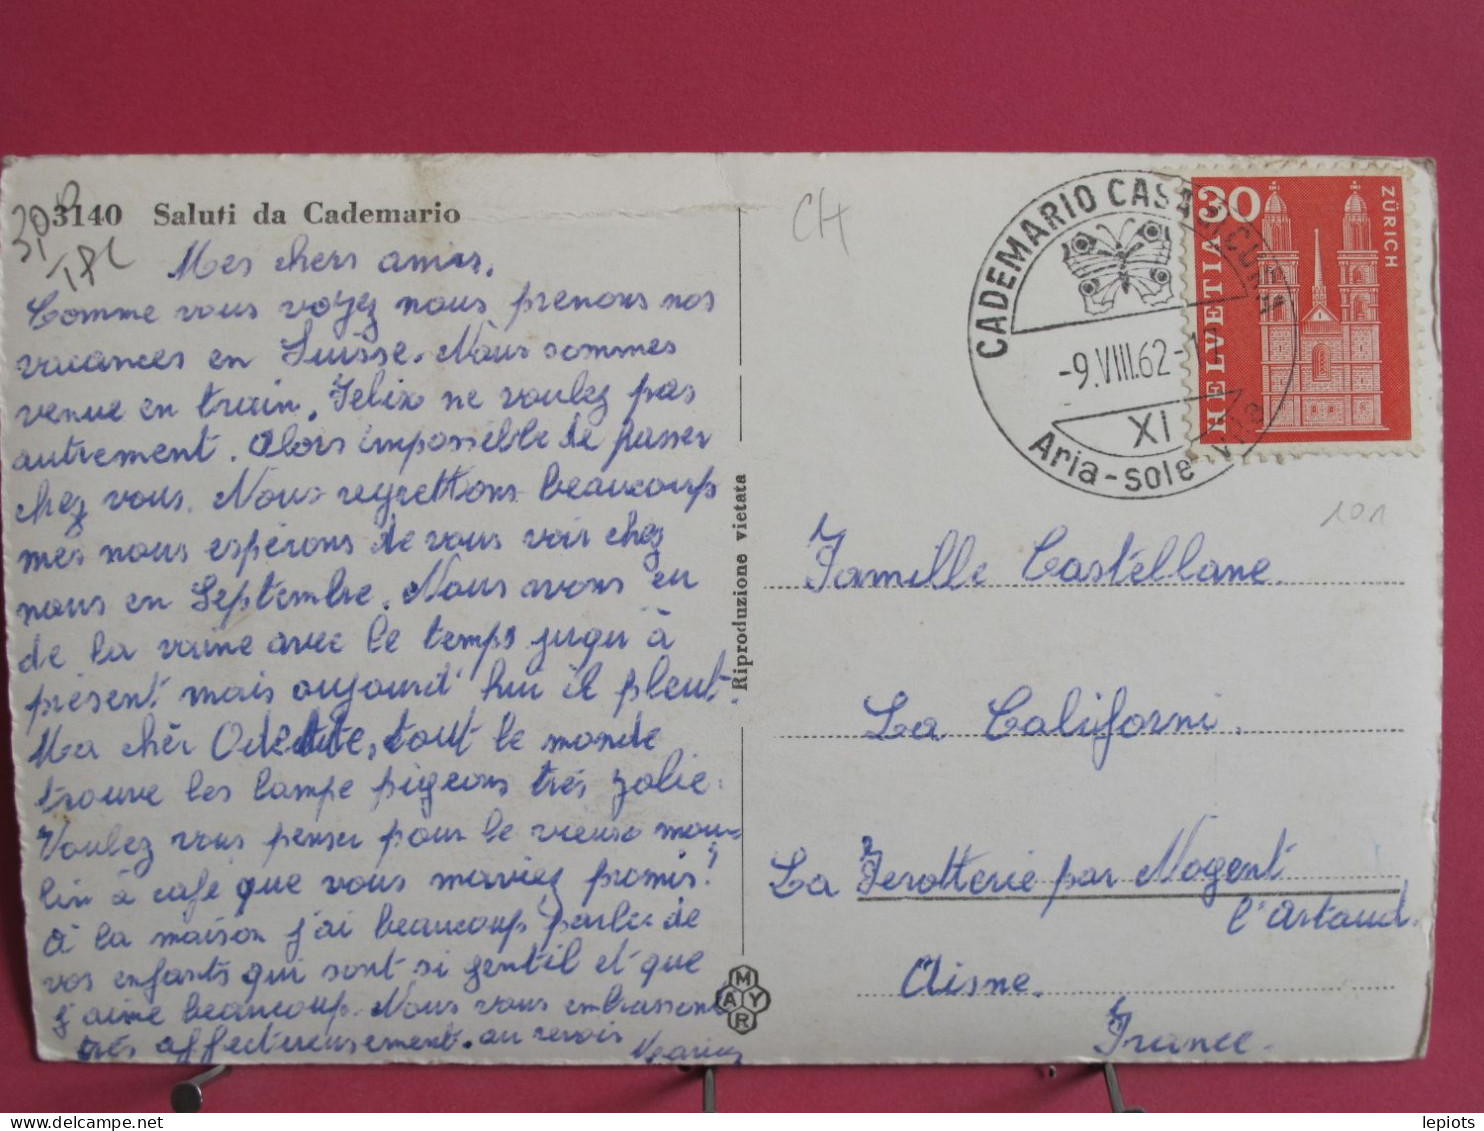 3140 Saluti da Cademario
Mes chers amis,
Comme vous voyez nous prenons nos
vacances en Suisse. Nous sommes
venue en train, Felix ne voulez pas
autrement. Alors impossible de passer
chez vous. Nous regrettons beaucoup
mes nous espérons de vous voir chez
nous en Septembre. Nous avons eu
de la vaine avec le temps juqu à
présent mais aujourd'hui il pleut.
Ma chèr Odette, tout le monde
trouve les lampe pigeons très jolie.
Voulez vous penser pour le vieuse mou-
lin à café que vous maviez promis?
A la maison j'ai beaucoup parler de
vos enfants qui sont si gentil et que
j'aime beaucoup. Nous vous embrassons
très affectueusement. au revoir
Riproduzione vietata
MAYR
CH
CADEMARIO CASA DI CURA
-9.VIII.62-
XI
Aria-sole
30
HELVETIA
ZÜRICH
101
Famille Castellane.
La Californi.
La Ferotterie par Nogent
l'Artaud.
Aisne.
France.
lepiots